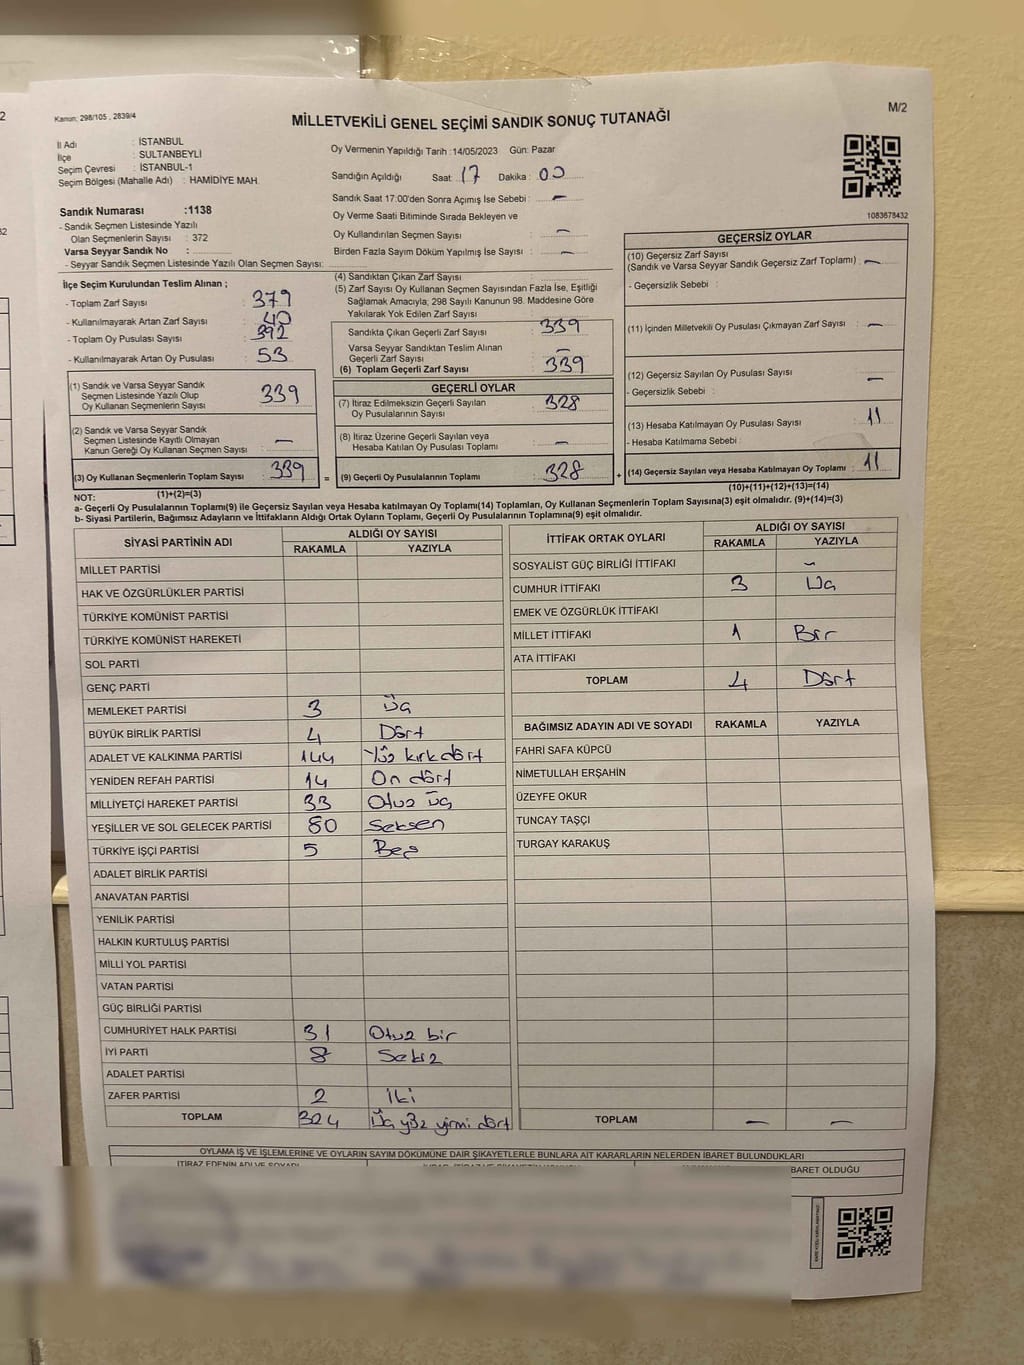 Kanun: 298/105 , 2839/4
M/2
MİLLETVEKİLİ GENEL SEÇİMİ SANDIK SONUÇ TUTANAĞI
İl Adı : İSTANBUL
İlçe : SULTANBEYLİ
Seçim Çevresi : İSTANBUL-1
Seçim Bölgesi (Mahalle Adı) : HAMİDİYE MAH.
Sandık Numarası :1138
- Sandık Seçmen Listesinde Yazılı
Olan Seçmenlerin Sayısı : 372
Varsa Seyyar Sandık No :
- Seyyar Sandık Seçmen Listesinde Yazılı Olan Seçmen Sayısı:
Oy Vermenin Yapıldığı Tarih :14/05/2023 Gün: Pazar
Sandığın Açıldığı Saat : 17 Dakika : 00
Sandık Saat 17.00'den Sonra Açımış İse Sebebi : -
Oy Verme Saati Bitiminde Sırada Bekleyen ve
Oy Kullandırılan Seçmen Sayısı : -
Birden Fazla Sayım Döküm Yapılmış İse Sayısı : -
1083678432
İlçe Seçim Kurulundan Teslim Alınan ;
- Toplam Zarf Sayısı : 379
- Kullanılmayarak Artan Zarf Sayısı : 40
- Toplam Oy Pusulası Sayısı : 392
- Kullanılmayarak Artan Oy Pusulası : 53
(1) Sandık ve Varsa Seyyar Sandık
Seçmen Listesinde Yazılı Olup
Oy Kullanan Seçmenlerin Sayısı : 339
(2) Sandık ve Varsa Seyyar Sandık
Seçmen Listesinde Kayıtlı Olmayan
Kanun Gereği Oy Kullanan Seçmen Sayısı : -
(3) Oy Kullanan Seçmenlerin Toplam Sayısı : 339
(1)+(2)=(3)
(4) Sandıktan Çıkan Zarf Sayısı :
(5) Zarf Sayısı Oy Kullanan Seçmen Sayısından Fazla İse, Eşitliği
Sağlamak Amacıyla; 298 Sayılı Kanunun 98. Maddesine Göre
Yakılarak Yok Edilen Zarf Sayısı :
Sandıkta Çıkan Geçerli Zarf Sayısı : 339
Varsa Seyyar Sandıktan Teslim Alınan
Geçerli Zarf Sayısı : -
(6) Toplam Geçerli Zarf Sayısı : 339
GEÇERLİ OYLAR
(7) İtiraz Edilmeksizin Geçerli Sayılan
Oy Pusulalarının Sayısı : 328
(8) İtiraz Üzerine Geçerli Sayılan veya
Hesaba Katılan Oy Pusulası Toplamı : -
= (9) Geçerli Oy Pusulalarının Toplamı : 328 +
GEÇERSİZ OYLAR
(10) Geçersiz Zarf Sayısı
(Sandık ve Varsa Seyyar Sandık Geçersiz Zarf Toplamı) : -
- Geçersizlik Sebebi :
(11) İçinden Milletvekili Oy Pusulası Çıkmayan Zarf Sayısı : -
(12) Geçersiz Sayılan Oy Pusulası Sayısı : -
- Geçersizlik Sebebi :
(13) Hesaba Katılmayan Oy Pusulası Sayısı : 11
- Hesaba Katılmama Sebebi :
(14) Geçersiz Sayılan veya Hesaba Katılmayan Oy Toplamı : 11
(10)+(11)+(12)+(13)=(14)
NOT:
a- Geçerli Oy Pusulalarının Toplamı(9) ile Geçersiz Sayılan veya Hesaba katılmayan Oy Toplamı(14) Toplamları, Oy Kullanan Seçmenlerin Toplam Sayısına(3) eşit olmalıdır. (9)+(14)=(3)
b- Siyasi Partilerin, Bağımsız Adayların ve İttifakların Aldığı Ortak Oyların Toplamı, Geçerli Oy Pusulalarının Toplamına(9) eşit olmalıdır.
SİYASİ PARTİNİN ADI ALDIĞI OY SAYISI
RAKAMLA YAZIYLA
MİLLET PARTİSİ
HAK VE ÖZGÜRLÜKLER PARTİSİ
TÜRKİYE KOMÜNİST PARTİSİ
TÜRKİYE KOMÜNİST HAREKETİ
SOL PARTİ
GENÇ PARTİ
MEMLEKET PARTİSİ 3 Üç
BÜYÜK BİRLİK PARTİSİ 4 Dört
ADALET VE KALKINMA PARTİSİ 144 Yüz kırk dört
YENİDEN REFAH PARTİSİ 14 On dört
MİLLİYETÇİ HAREKET PARTİSİ 33 Otuz üç
YEŞİLLER VE SOL GELECEK PARTİSİ 80 Seksen
TÜRKİYE İŞÇİ PARTİSİ 5 Beş
ADALET BİRLİK PARTİSİ
ANAVATAN PARTİSİ
YENİLİK PARTİSİ
HALKIN KURTULUŞ PARTİSİ
MİLLİ YOL PARTİSİ
VATAN PARTİSİ
GÜÇ BİRLİĞİ PARTİSİ
CUMHURİYET HALK PARTİSİ 31 Otuz bir
İYİ PARTİ 8 Sekiz
ADALET PARTİSİ
ZAFER PARTİSİ 2 İki
TOPLAM 324 Üç yüz yirmi dört
İTTİFAK ORTAK OYLARI ALDIĞI OY SAYISI
RAKAMLA YAZIYLA
SOSYALİST GÜÇ BİRLİĞİ İTTİFAKI -
CUMHUR İTTİFAKI 3 Üç
EMEK VE ÖZGÜRLÜK İTTİFAKI
MİLLET İTTİFAKI 1 Bir
ATA İTTİFAKI
TOPLAM 4 Dört
BAĞIMSIZ ADAYIN ADI VE SOYADI RAKAMLA YAZIYLA
FAHRİ SAFA KÜPCÜ
NİMETULLAH ERŞAHİN
ÜZEYFE OKUR
TUNCAY TAŞÇI
TURGAY KARAKUŞ
TOPLAM - -
OYLAMA İŞ VE İŞLEMLERİNE VE OYLARIN SAYIM DÖKÜMÜNE DAİR ŞİKAYETLERLE BUNLARA AİT KARARLARIN NELERDEN İBARET BULUNDUKLARI
İTİRAZ EDENİN ADI VE SOYADI
İBARET OLDUĞU